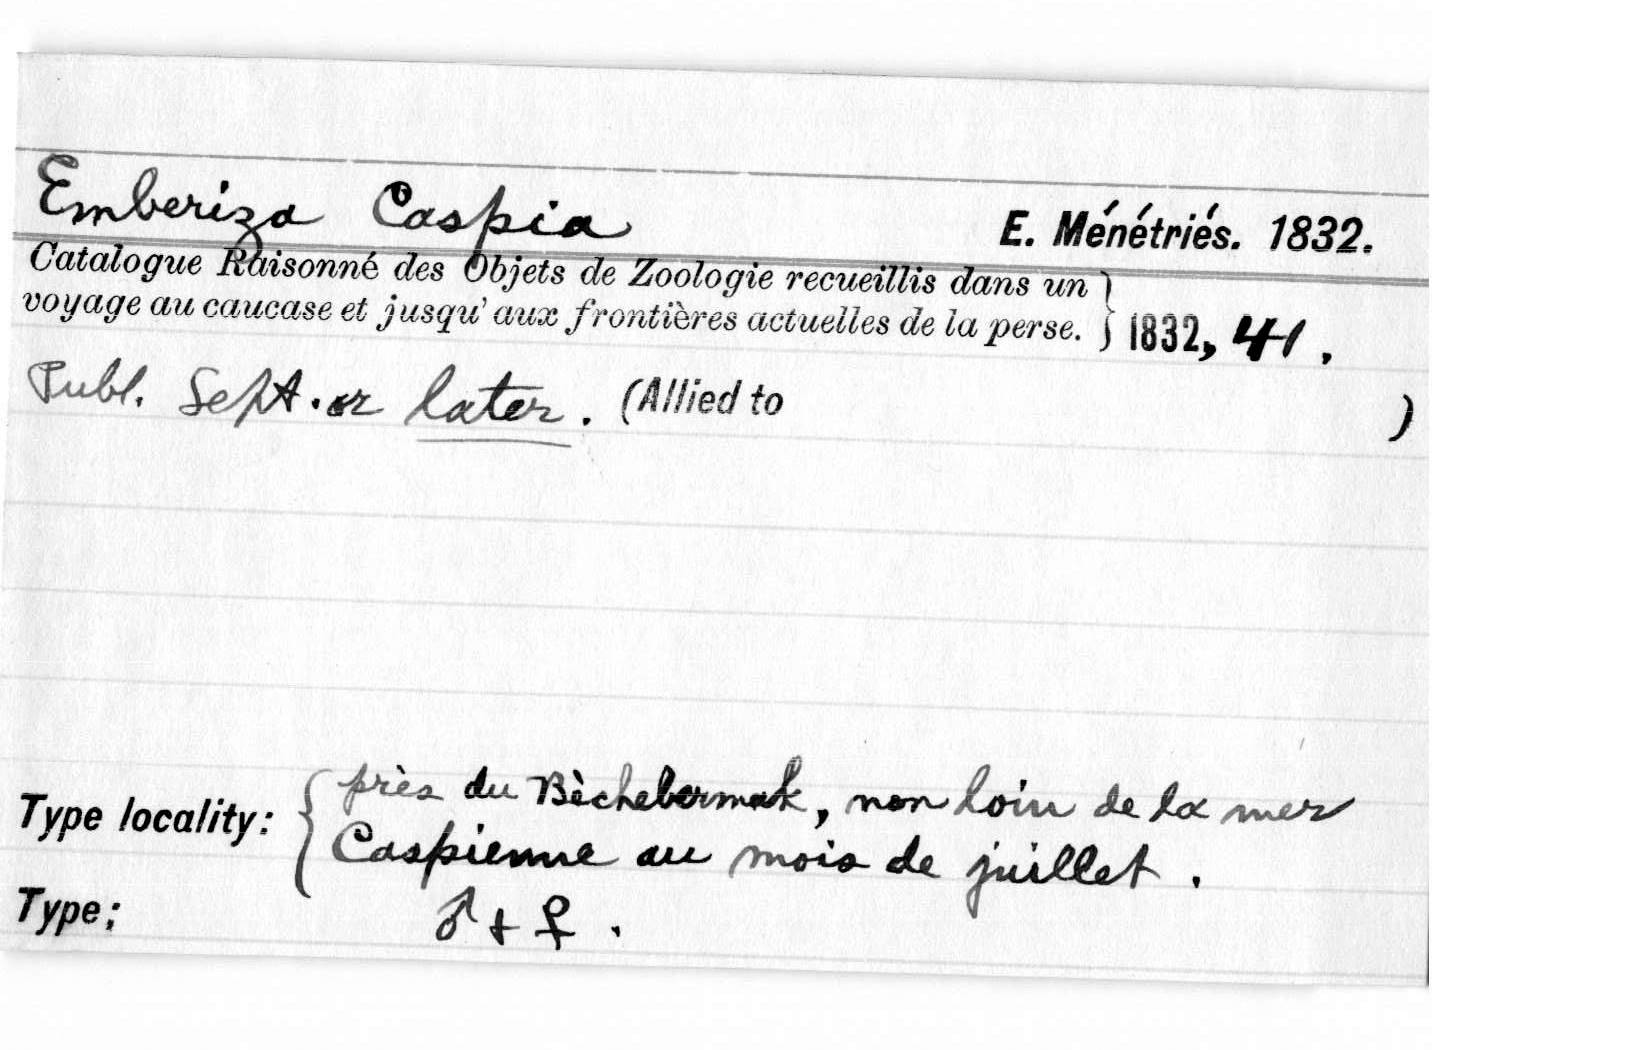 Emberiza Caspia E. Ménétriés. 1832.
Catalogue Raisonné des Objets de Zoologie recueillis dans un
voyage au caucase et jusqu' aux frontières actuelles de la perse. } 1832, 41.
Publ. Sept. or later. (Allied to )
Type locality: { près du Bèchebermak, non loin de la mer
Caspienne au mois de juillet.
Type: ♂ + ♀.